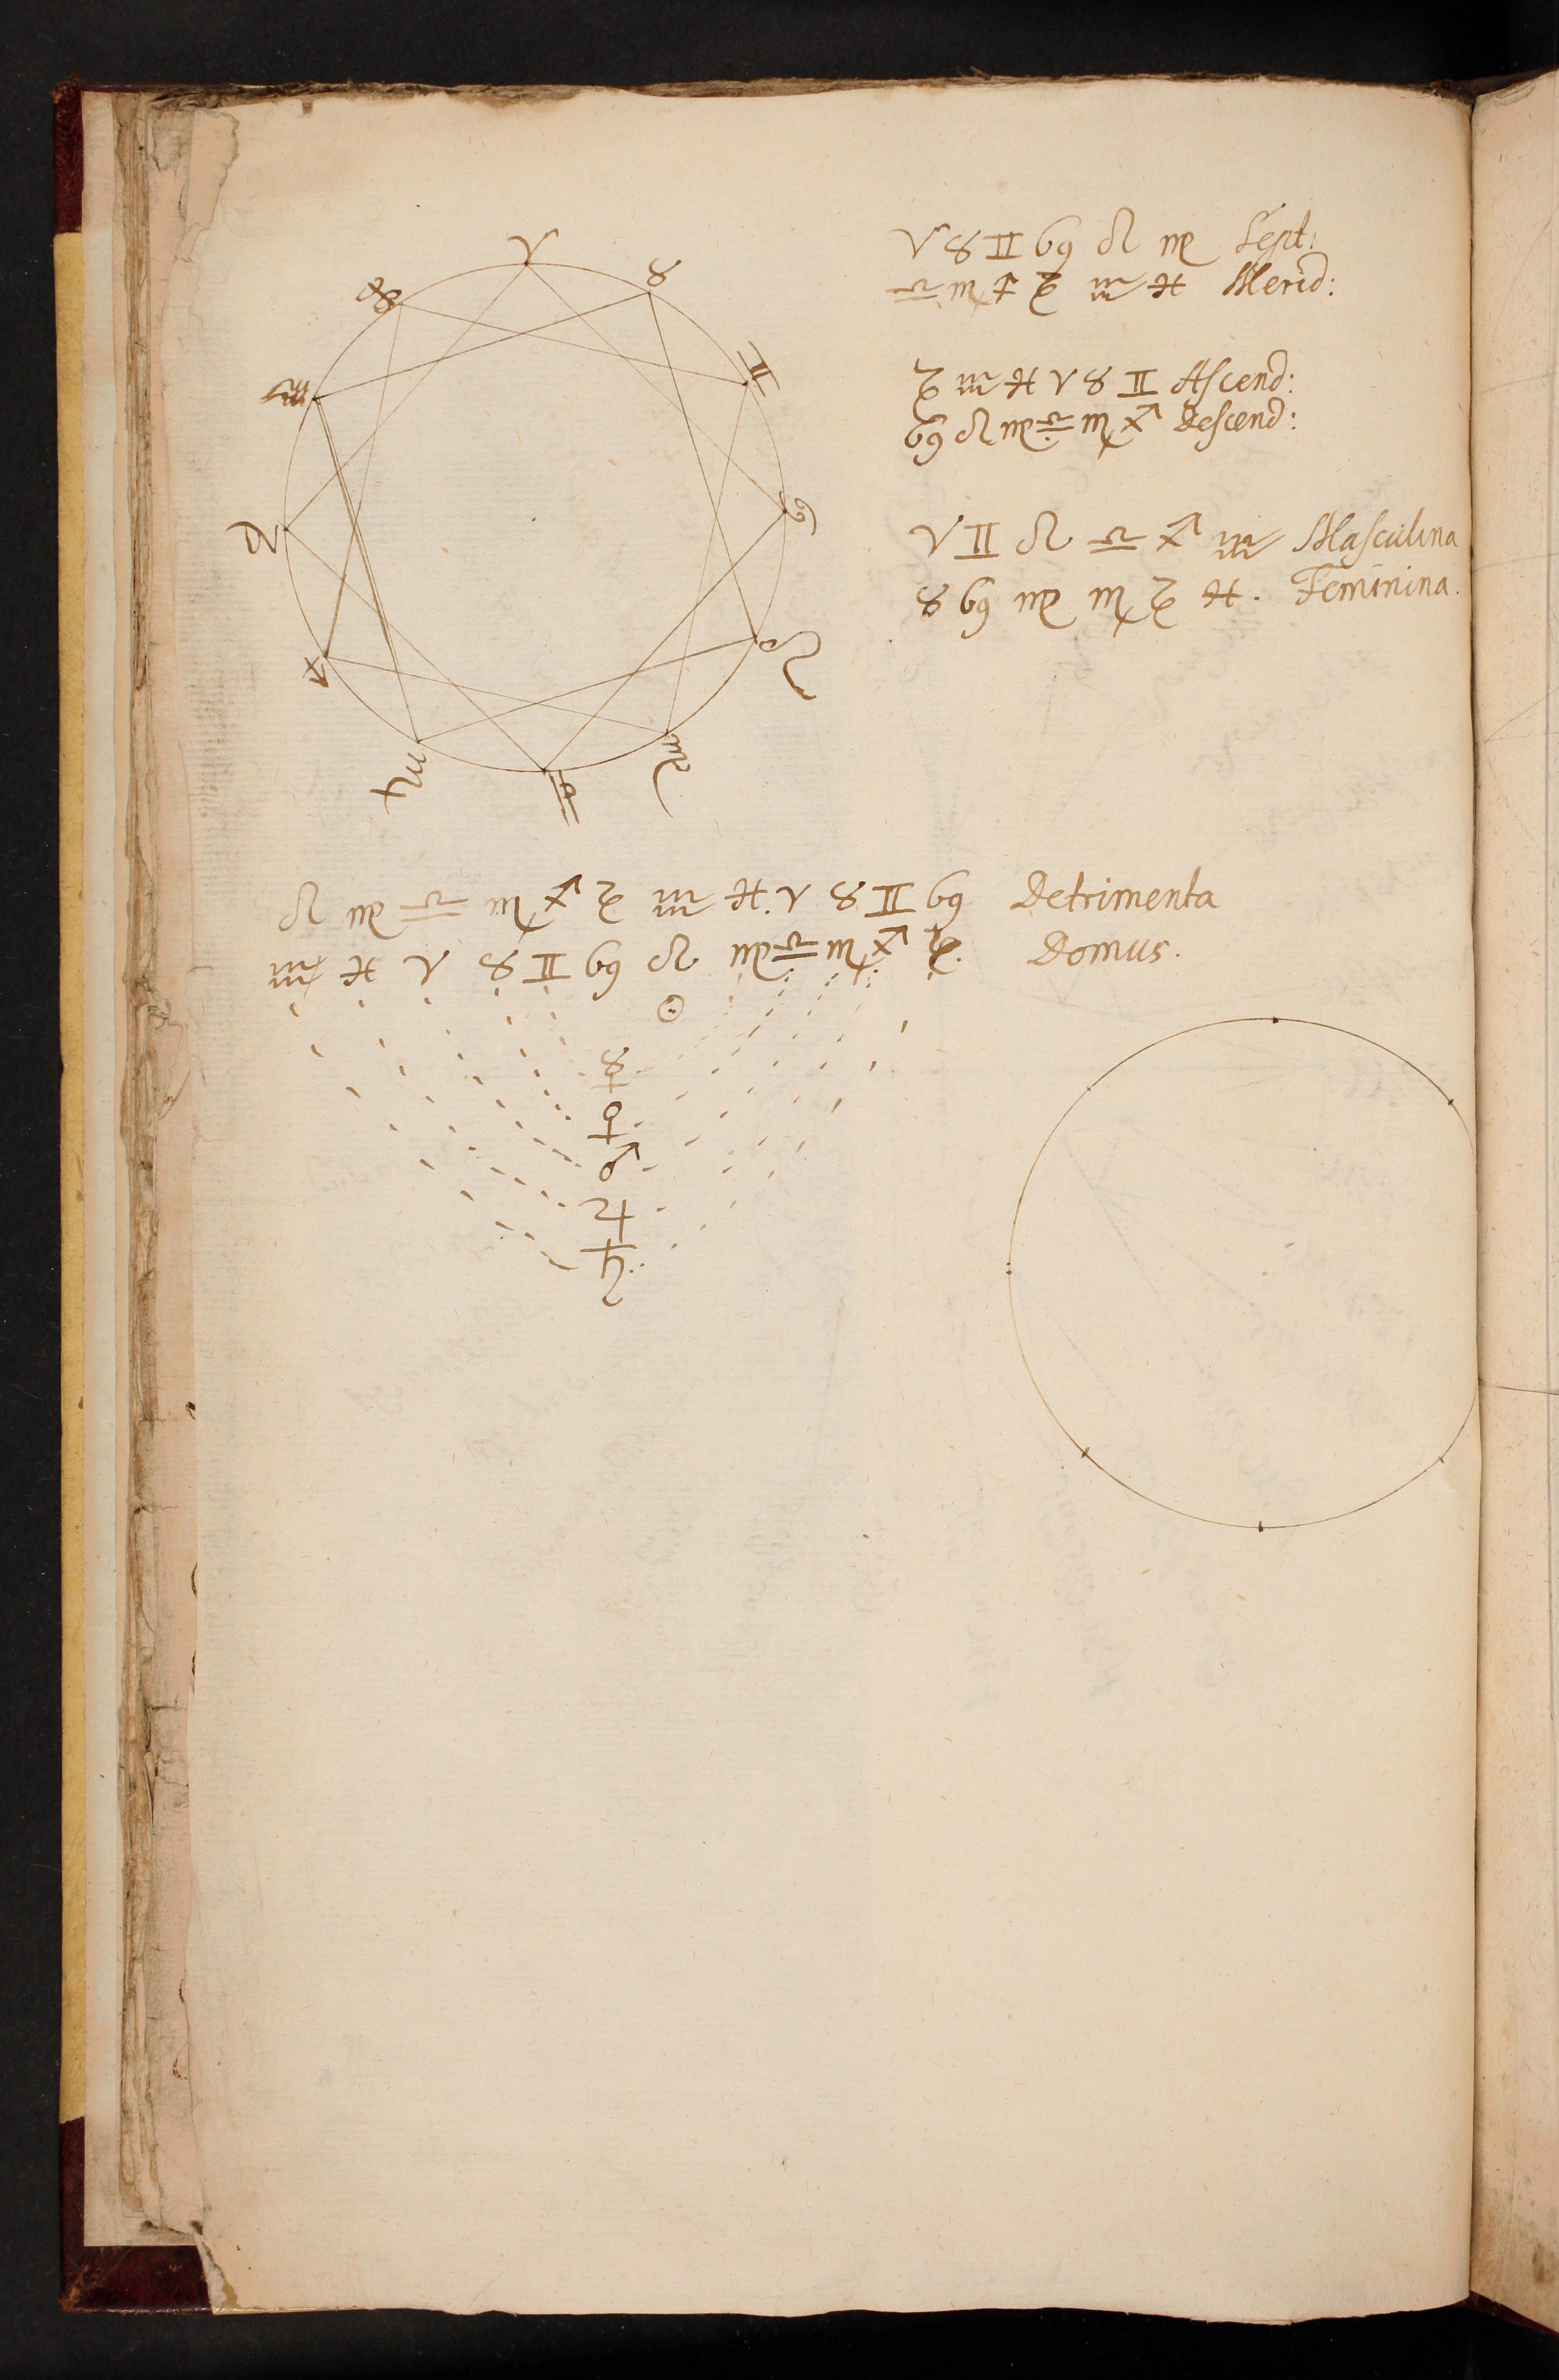 ♈ ♉ ♊ ♋ ♌ ♍ Sept:
♎ ♏ ♐ ♑ ♒ ♓ Merid:
♑ ♒ ♓ ♈ ♉ ♊ Ascend:
♋ ♌ ♍ ♎ ♏ ♐ Descend:
♈ ♊ ♌ ♎ ♐ ♒ Masculina
♉ ♋ ♍ ♏ ♑ ♓. Feminina.
♈
♉
♊
♋
♌
♍
♎
♏
♐
♑
♒
♓
♌ ♍ ♎ ♏ ♐ ♑ ♒ ♓. ♈ ♉ ♊ ♋ Detrimenta
♒ ♓ ♈ ♉ ♊ ♋ ♌ ♍ ♎ ♏ ♐ ♑. Domus.
☉
☿
♀
♂
♃
♄